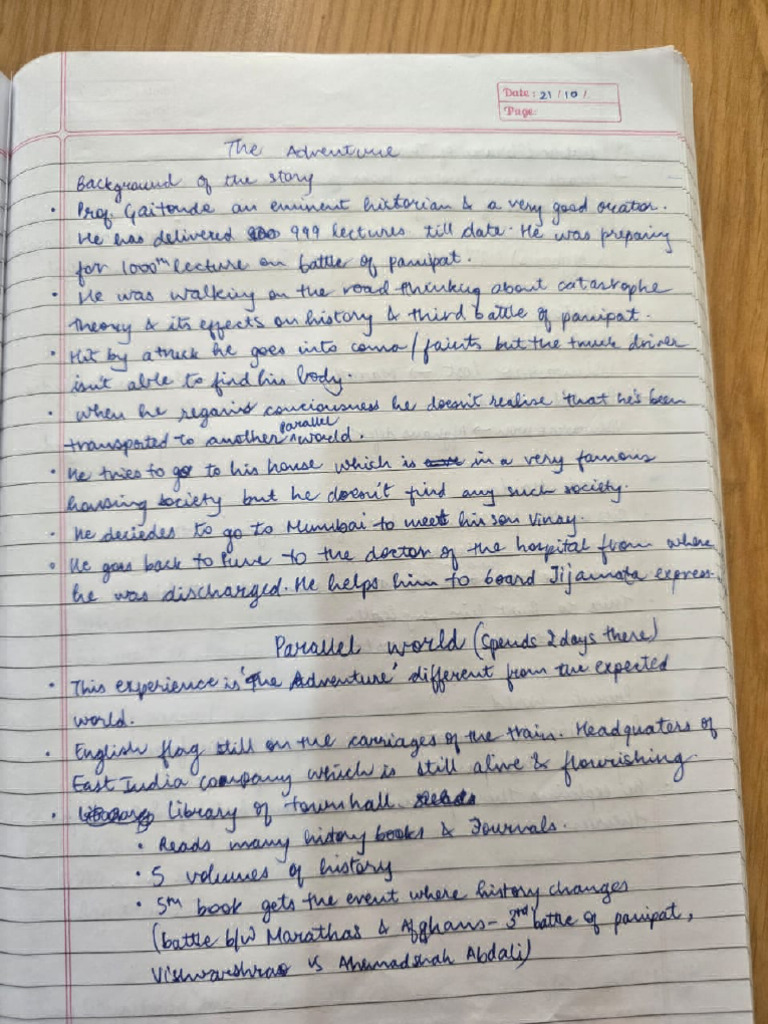 Date: 21/10/
Page:
The Adventure
Background of the story
• Prof. Gaitonde an eminent historian & a very good orator.
He has delivered 999 lectures till date. He was preparing
for 1000th lecture on battle of panipat.
• He was walking on the road thinking about catastrophe
theory & its effects on history & third battle of panipat.
• Hit by a truck he goes into coma/faints but the truck driver
isn't able to find his body.
• When he regains conciousness he doesn't realise that he's been
transported to another parallel world.
• He tries to go to his house which is in a very famous
housing society but he doesn't find any such society.
• He deciedes to go to Mumbai to meet his son Vinay.
• He goes back to Pune to the doctor of the hospital from where
he was discharged. He helps him to board Jijamata express.
Parallel world (Spends 2 days there)
• This experience is 'The Adventure' different from the expected
world.
• English flag still on the carriages of the train. Headquaters of
East India company which is still alive & flourishing.
• Library of townhall
• Reads many history books & Journals.
• 5 volumes of history
• 5th book gets the event where history changes
(battle b/w Marathas & Afghans - 3rd battle of panipat,
vs Ahemadshah Abdali)